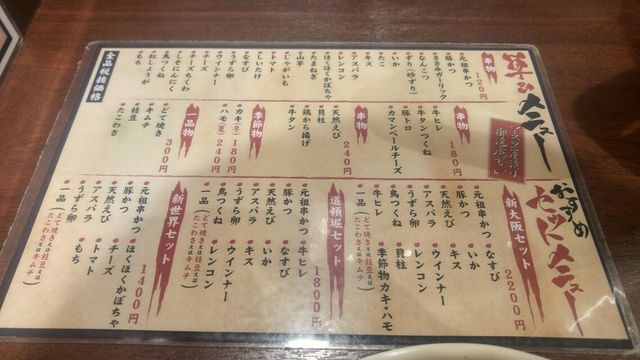 単品メニュー
串物 120円
元祖串かつ
豚かつ
ささみガーリック
なんこつ
ずり(砂ずり)
いか
たこ
キス
アスパラ
レンコン
ほくほくかぼちゃ
たまねぎ
山芋
じゃがいも
トマト
しいたけ
なすび
うずら卵
ウインナー
チーズ
チーズちくわ
しそにんにく
鳥つくね
紅しょうが
もち
全品税抜価格
御遠慮下さい
串物 180円
牛ヒレ
牛タンつくね
豚トロ
カマンベールチーズ
串物 240円
天然えび
貝柱
鶏から揚げ
牛タン
季節物
カキ(冬) 180円
ハモ(夏) 240円
一品物 300円
どて焼き
キムチ
枝豆
たこわさ
おすすめ
セットメニュー
新大阪セット 2200円
元祖串かつ
豚かつ なすび
天然えび いか
アスパラ キス
うずら卵 ウインナー
鳥つくね レンコン
牛ヒレ 貝柱
一品(どて焼き又は枝豆又はたこわさ又はキムチ) 季節物カキ・ハモ
道頓堀セット 1800円
元祖串かつ 牛ヒレ
豚かつ なすび
天然えび いか
アスパラ キス
うずら卵 ウインナー
鳥つくね レンコン
一品(どて焼き又は枝豆又はたこわさ又はキムチ)
新世界セット 1400円
元祖串かつ
豚かつ ほくほくかぼちゃ
天然えび チーズ
アスパラ トマト
うずら卵 もち
一品(どて焼き又は枝豆又はたこわさ又はキムチ)